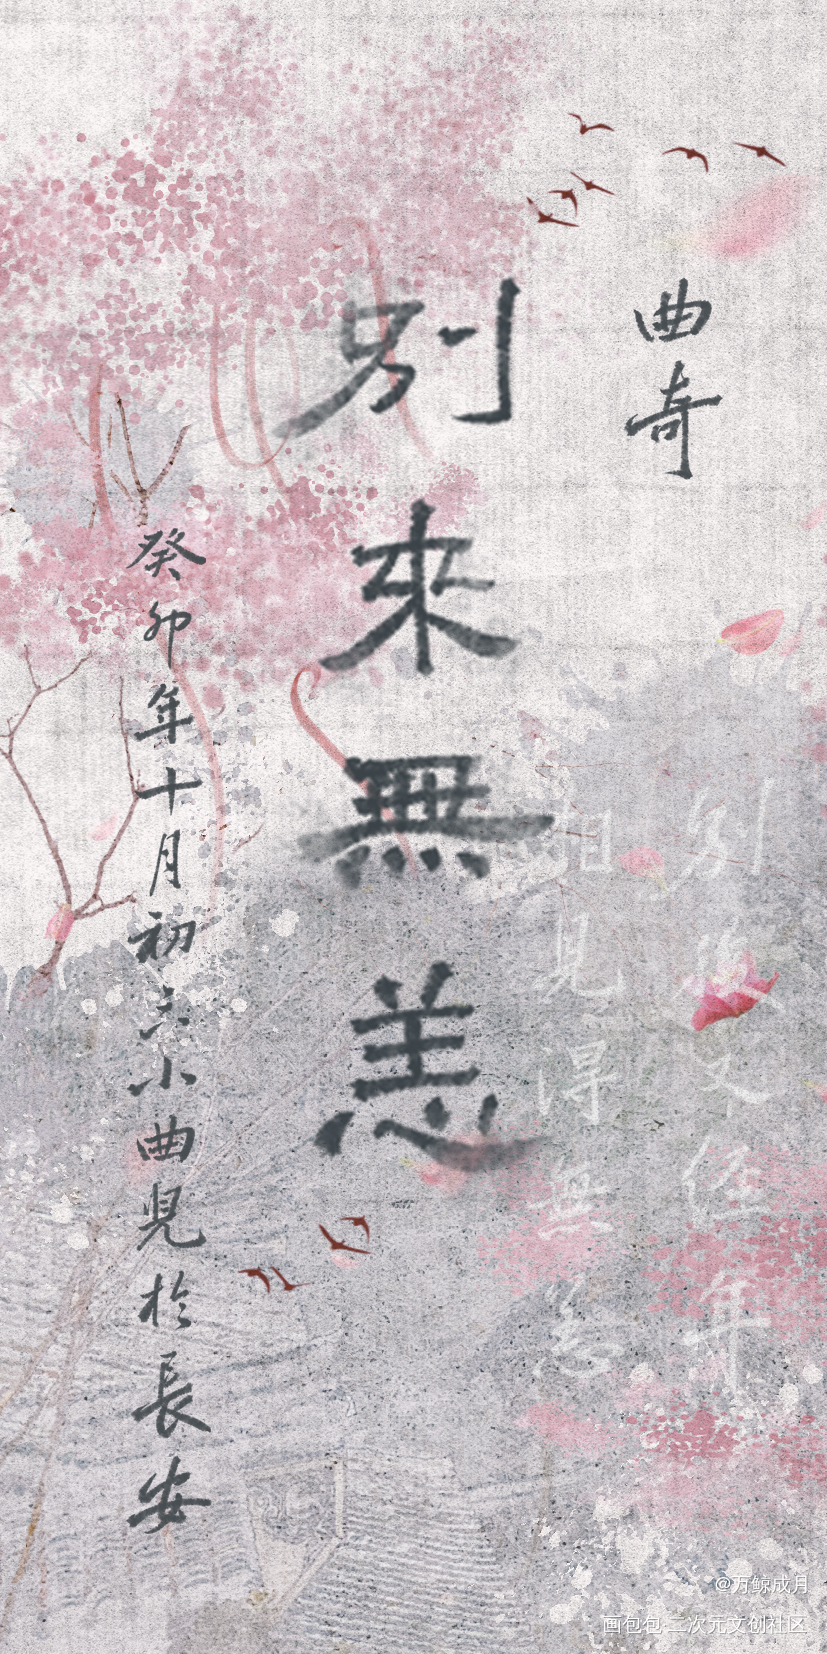 曲奇
別後又經年
相見得無恙
別來無恙
癸卯年十月初六小曲見於長安
@万鲸成月
画包包·二次元文创社区